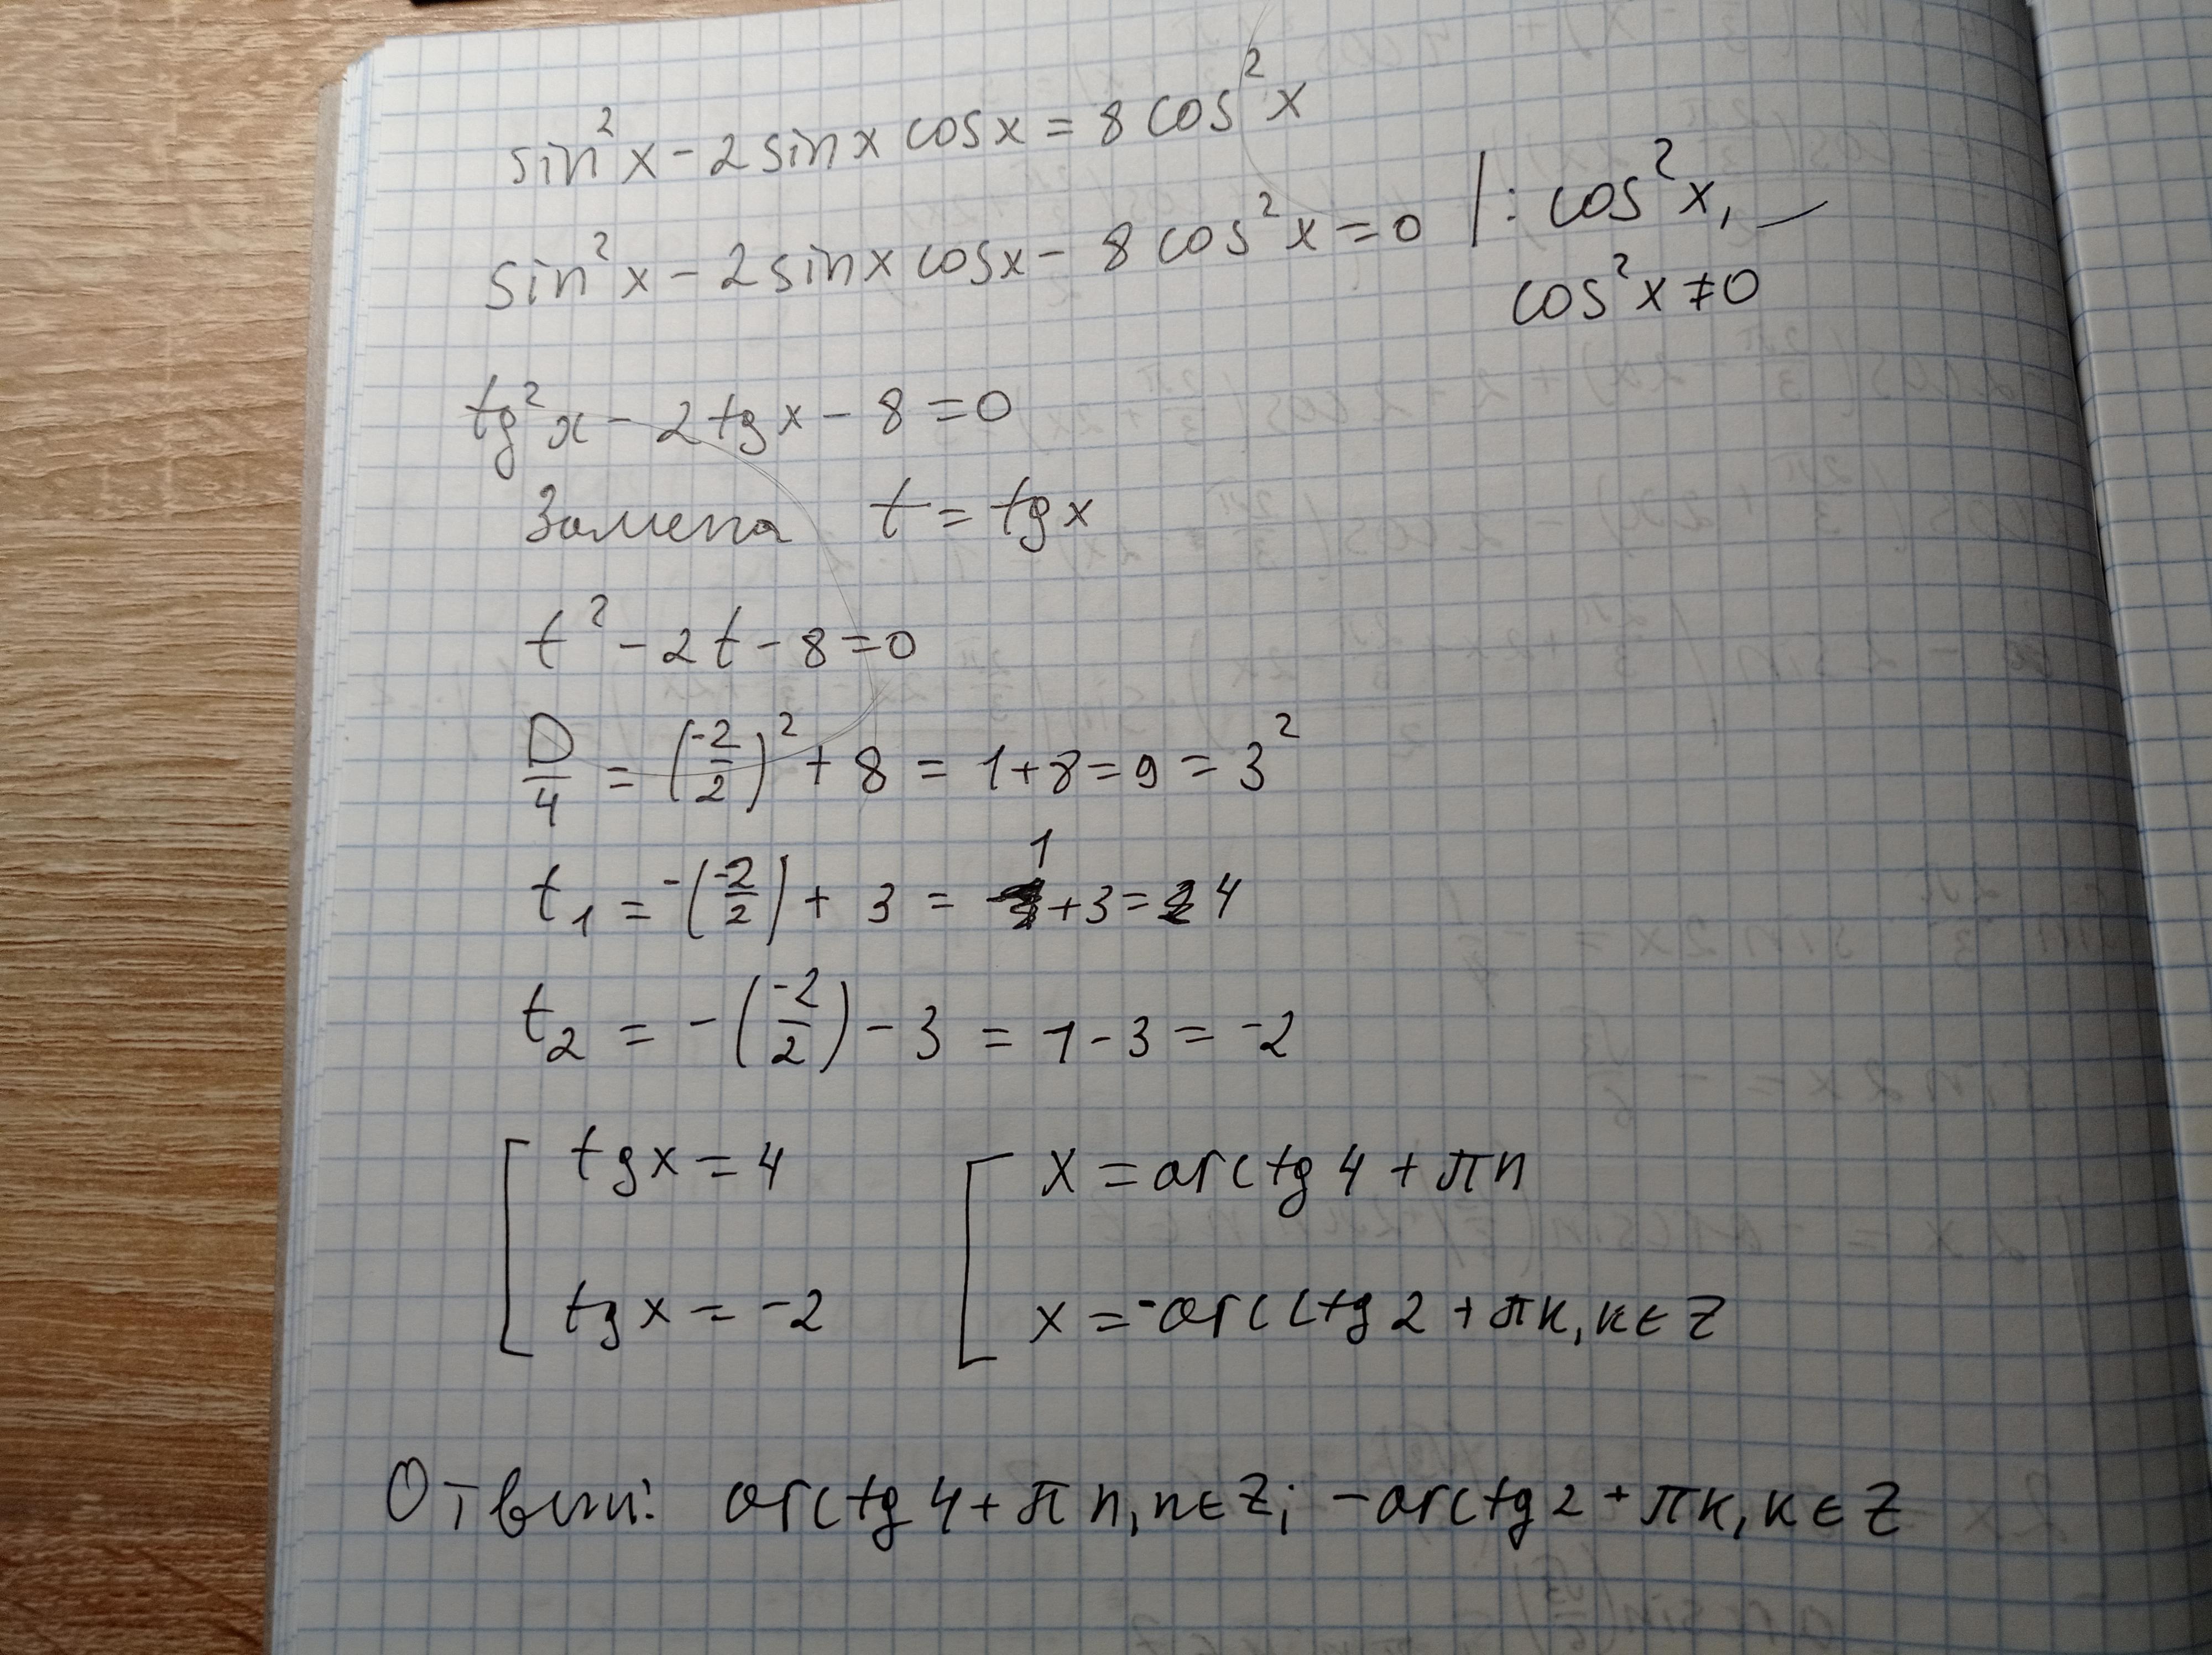 sin²x - 2 sinx cosx = 8 cos²x
sin²x - 2 sinx cosx - 8 cos²x = 0 | : cos²x,
cos²x ≠ 0
tg²x - 2 tgx - 8 = 0
Замена t = tgx
t² - 2t - 8 = 0
D/4 = (-2/2)² + 8 = 1 + 8 = 9 = 3²
t₁ = -(-2/2) + 3 = 1 + 3 = 4
t₂ = -(-2/2) - 3 = 1 - 3 = -2
[ tgx = 4 [ x = arctg 4 + πn
tgx = -2 x = -arcctg 2 + πk, k ∈ Z
Ответ: arctg 4 + πn, n ∈ Z; -arctg 2 + πk, k ∈ Z